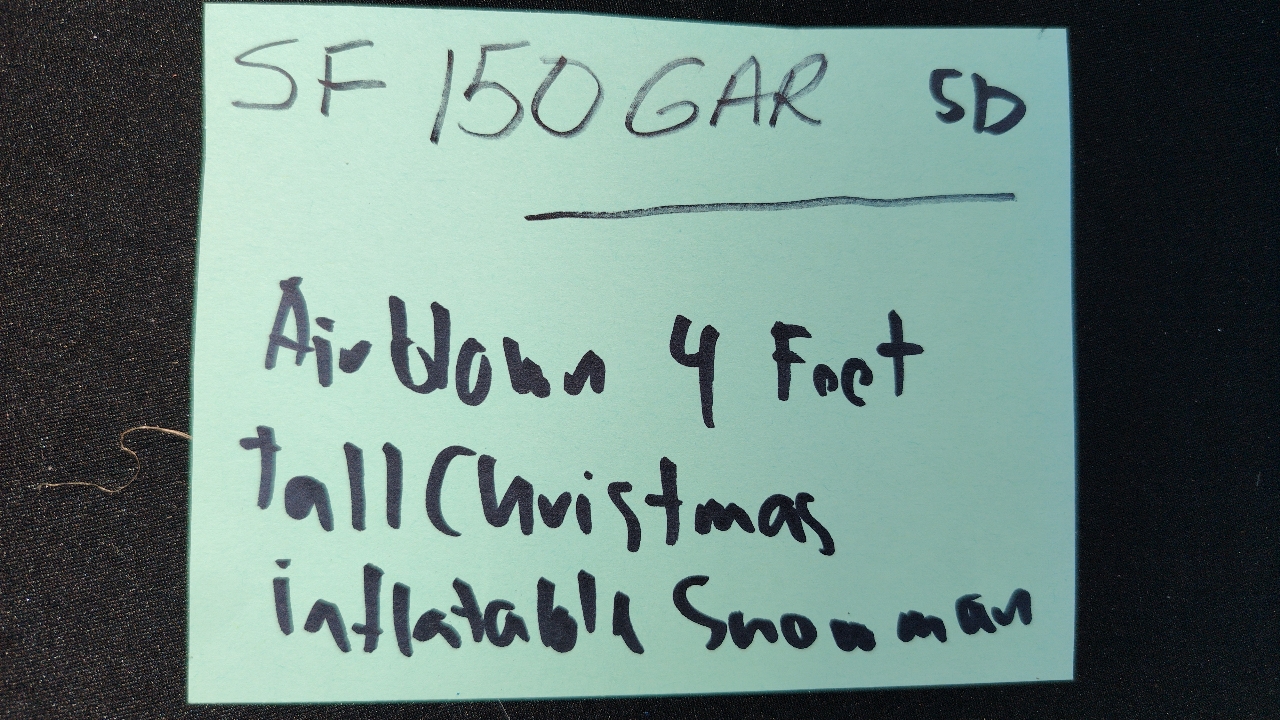 SF 150 GAR SD
Airblown 4 Feet
tall Christmas
inflatable Snowman